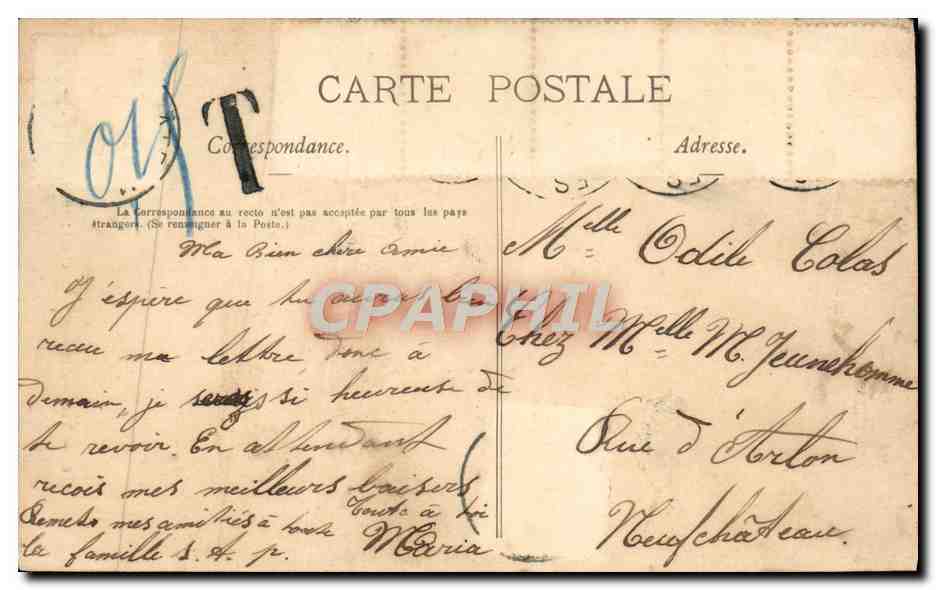 CARTE POSTALE
Correspondance.
Adresse.
T
La Correspondance au recto n'est pas acceptée par tous les pays
étrangers. (Se renseigner à la Poste.)
Ma Bien chère Amie
J'espère que tu auras bien
recu ma lettre, donc à
demain, je suis si heureuse de
te revoir. En attendant
recois mes meilleurs baisers
Toute à toi
Remets mes amitiés à toute
la famille s. t. p. Maria
Melle Odile Colas
Chez Melle M. Jeunehomme
Rue d'Arlon
Neufchâteau.
CPAPHIL